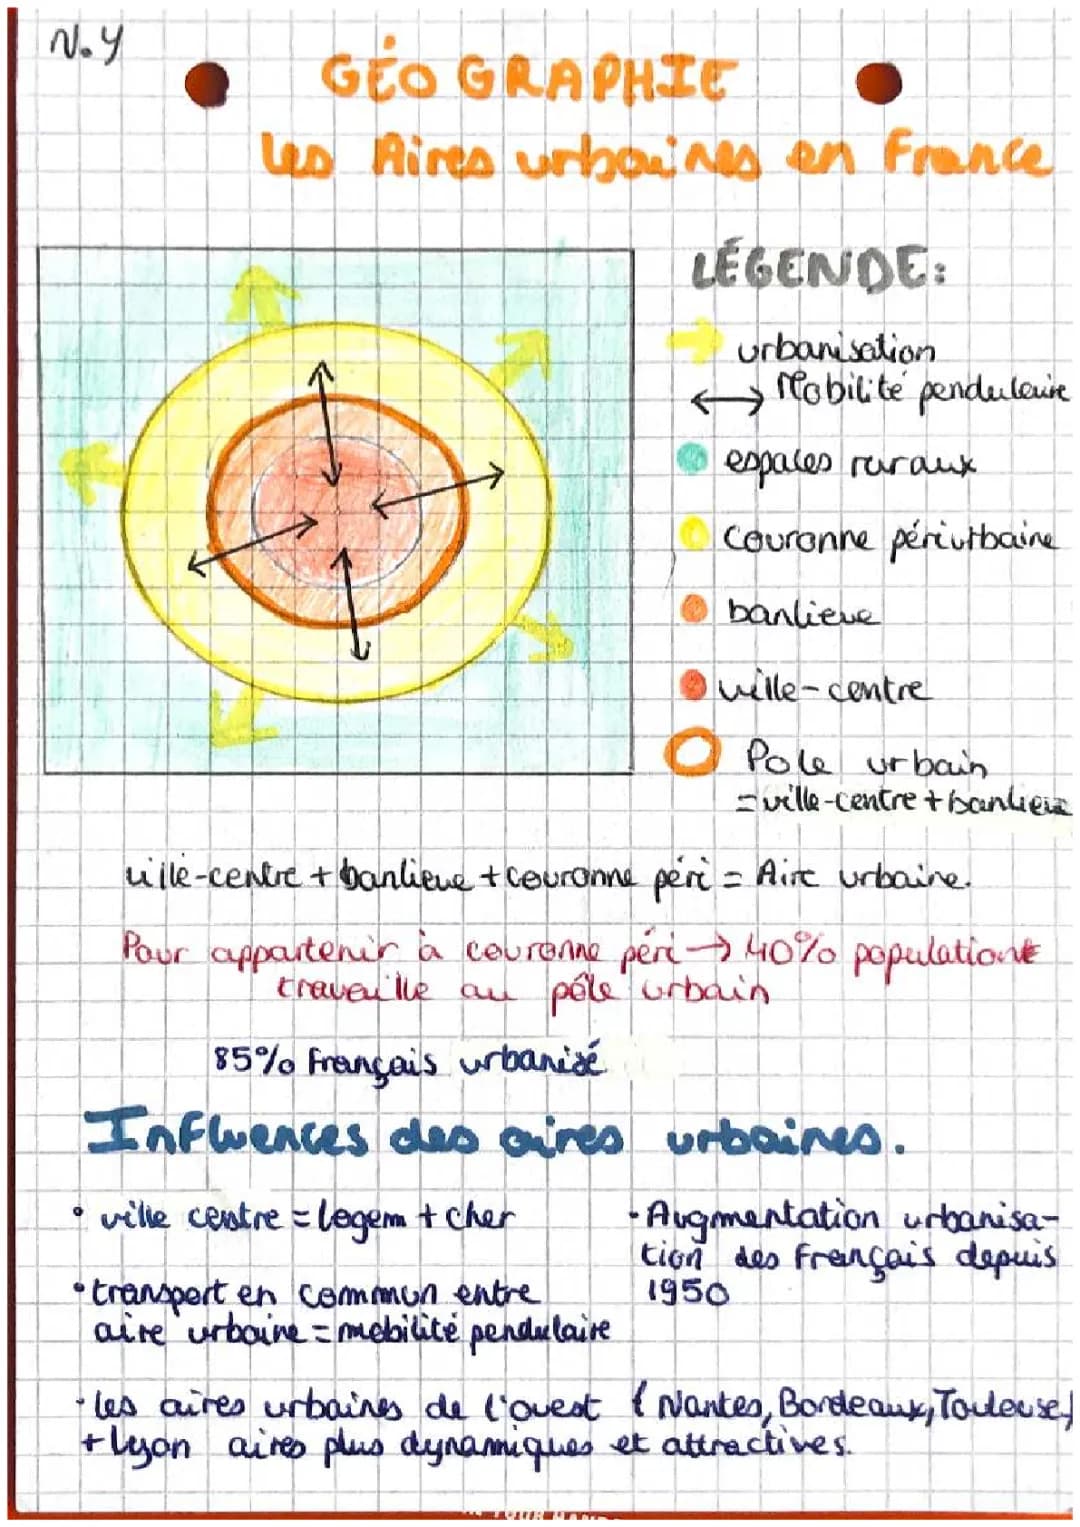 N.Y
GÉOGRAPHIE
les Aires urbaines en France
LÉGENDE:
urbanisation
Mobilité pendulaire
espaces ruraux
couronne périurbaine
banlieue
ville-centre
Pole urbain
=ville-centre+banlieue
ville-centre + banlieue + couronne péri = Aire urbaine.
Pour appartenir à couronne péri → 40% population
travaille au pôle urbain
85% Français urbanisé
Influences des aires urbaines.
• ville centre = logem + cher
• transport en commun entre
aire urbaine = mobilité pendulaire
• Augmentation urbanisa-
tion des Français depuis
1950
• les aires urbaines de l'ouest (Nantes, Bordeaux, Toulouse)
+ Lyon aires plus dynamiques et attractives.